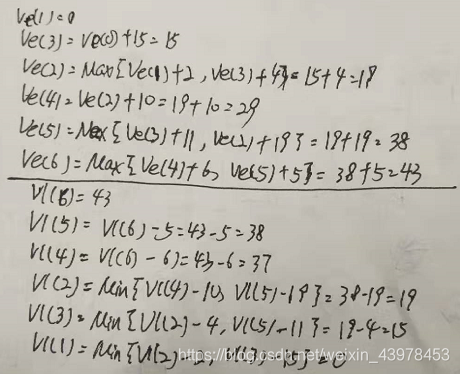 Ve(1)=0
Ve(3)=Ve(1)+15=15
Ve(2)=Max{Ve(1)+2, Ve(3)+4}=15+4=19
Ve(4)=Ve(2)+10=19+10=29
Ve(5)=Max{Ve(3)+11, Ve(2)+19}=19+19=38
Ve(6)=Max{Ve(4)+6, Ve(5)+5}=38+5=43
Vl(6)=43
Vl(5)=Vl(6)-5=43-5=38
Vl(4)=Vl(6)-6)=43-6=37
Vl(2)=Min{Vl(4)-10, Vl(5)-19}=38-19=19
Vl(3)=Min{Vl(2)-4, Vl(5)-11}=19-4=15
Vl(1)=Min{Vl(2)-2, -15}=0
https://blog.csdn.net/weixin_43978453